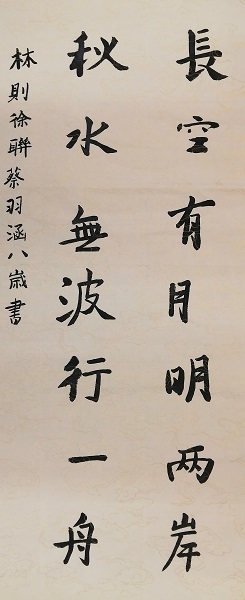 長空有月明两岸
秋水無波行一舟
林則徐聯蔡羽涵八歲書